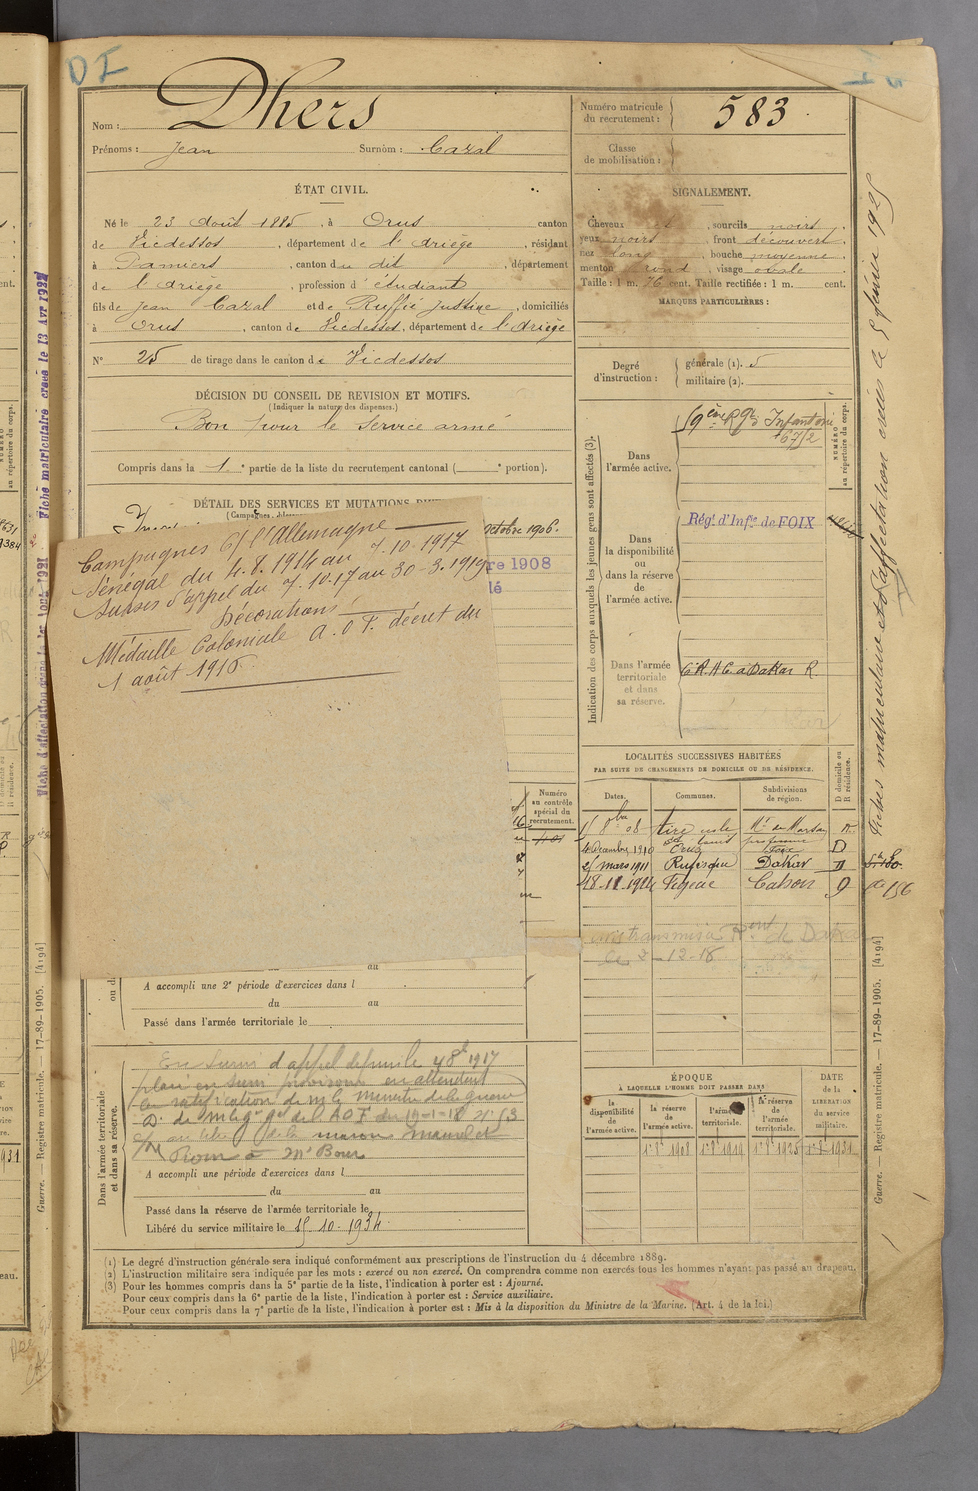 DI
Nom : Dhers
Prénoms : Jean Surnom : Cazal
ÉTAT CIVIL.
Né le 23 août 1885, à Orus canton
de Vicdessos, département de l'Ariège, résidant
à Pamiers, canton du dit, département
de l'Ariège, profession d'étudiant
fils de Jean Cazal et de Ruffié Justine, domiciliés
à Orus, canton de Vicdessos, département de l'Ariège
N° 25 de tirage dans le canton de Vicdessos
DÉCISION DU CONSEIL DE REVISION ET MOTIFS.
(Indiquer la nature des dispenses.)
Bon pour le service armé
Compris dans la 1e partie de la liste du recrutement cantonal ( e portion).
DÉTAIL DES SERVICES ET MUTATIONS
octobre 1906.
re 1908
lé
Campagnes C/ l'Allemagne
Sénégal du 4.8.1914 au 7.10.1917
Sursis d'appel du 7.10.17 au 30-3.1919
Décorations
Médaille Coloniale A.O.F. décret du
1 août 1916
Numéro
au contrôle
spécial du
recrutement.
au
A accompli une 2e période d'exercices dans l
du au
Passé dans l'armée territoriale le
Dans l'armée territoriale
et dans sa réserve.
En sursis d'appel depuis le 7 8bre 1917
placé en sursis provisoire en attendant
la ratification de Mr le Ministre de la guerre
D. de Mr le gr gal de l'AOF du 19-1-18 N° 63
au titre de la maison Maurel et
Prom à
A accompli une période d'exercices dans l
du au
Passé dans la réserve de l'armée territoriale le
Libéré du service militaire le 15.10.1934
Numéro matricule
du recrutement : 583
Classe
de mobilisation :
SIGNALEMENT.
Cheveux et, sourcils noirs
yeux noirs, front découvert
nez long, bouche moyenne
menton rond, visage ovale
Taille : 1 m. 76 cent. Taille rectifiée : 1 m. cent.
MARQUES PARTICULIÈRES :
Degré
d'instruction :
générale (1). 5
militaire (2).
Indication des corps auxquels les jeunes gens sont affectés (3).
Dans
l'armée active.
59ème Rgt d'Infanterie
6712
NUMÉRO
au répertoire du corps.
Dans
la disponibilité
ou
dans la réserve
de
l'armée active.
Régt d'Infie de FOIX
Dans l'armée
territoriale
et dans
sa réserve.
C.R.A.C. à Dakar R.
LOCALITÉS SUCCESSIVES HABITÉES
PAR SUITE DE CHANGEMENTS DE DOMICILE OU DE RÉSIDENCE.
Dates. Communes. Subdivisions
de région.
D domicile ou
R résidence.
Mt de Marsan R.
4 Décembre 1910 Orus Foix D
25 mars 1911 Rufisque Dakar D
18.11.1924 Figeac Cahors D
avis transmis à Rent de Dakar
le 2-12-18
ÉPOQUE
À LAQUELLE L'HOMME DOIT PASSER DANS
DATE
de la
LIBÉRATION
du service
militaire.
la
disponibilité
de
l'armée active.
la réserve
de
l'armée active.
l'armée
territoriale.
la réserve
de
l'armée
territoriale.
1er 8bre 1908
(1) Le degré d'instruction générale sera indiqué conformément aux prescriptions de l'instruction du 4 décembre 1889.
(2) L'instruction militaire sera indiquée par les mots : exercé ou non exercé. On comprendra comme non exercés tous les hommes n'ayant pas passé au drapeau.
(3) Pour les hommes compris dans la 5e partie de la liste, l'indication à porter est : Ajourné.
Pour ceux compris dans la 6e partie de la liste, l'indication à porter est : Service auxiliaire.
Pour ceux compris dans la 7e partie de la liste, l'indication à porter est : Mis à la disposition du Ministre de la Marine. (Art. 4 de la loi.)
Fiches matriculaire et d'affectation créés le 5 février 1925
Guerre. — Registre matricule. — 17-89-1905. [4194]
Fiche matriculaire créée le 13 Avr 1922
Guerre. — Registre matricule. — 17-89-1905. [4194]